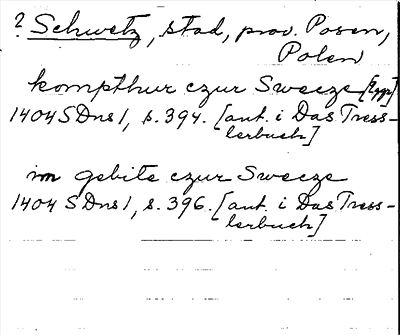 ? Schwetz, stad, prov. Posen,
Polen
kompthur czur Sweeze [Egge]
1404 SDns 1, s. 394. [ant. i Das Tress-
lerbuch]
im gebite czur Sweeze
1404 SDns 1, s. 396. [ant. i Das Tress-
lerbuch]